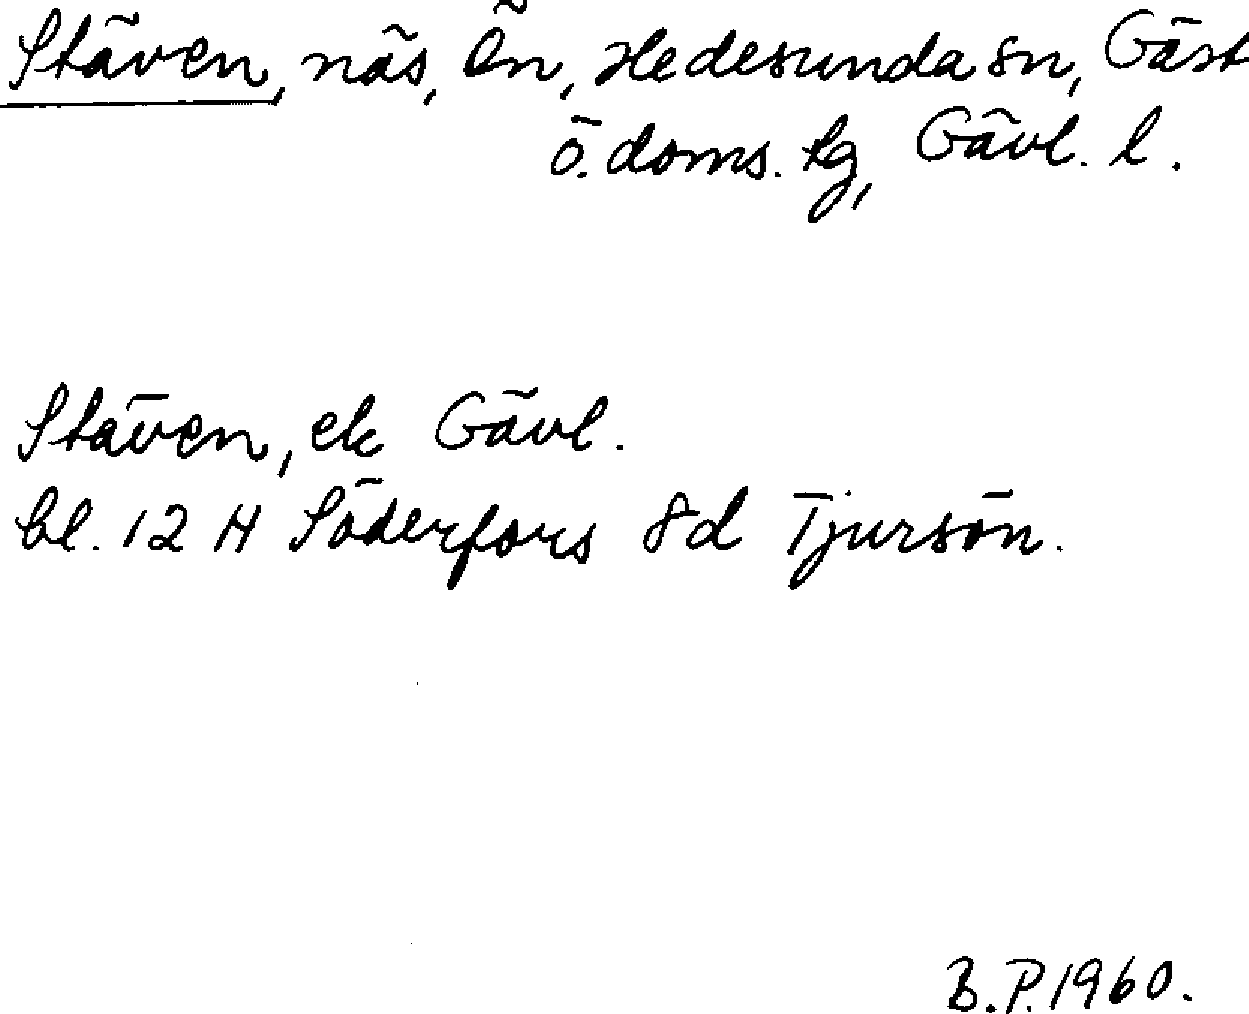 Stäven, näs, Ön, Hedesunda sn, Gäst
ö. doms. tg, Gävl. l.
Stäven, ek Gävl.
bl. 12 H Söderfors 8d Tjursön.
B.P. 1960.